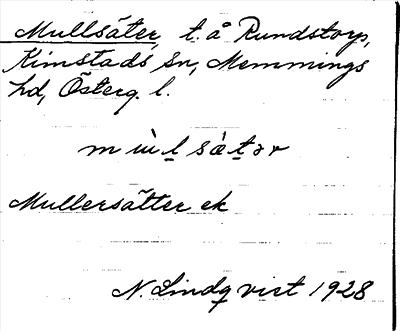 Mullsäter, t. å Rundstorp,
Kimstads Sn, Memmings
hd, Österg. l.
m ùl sàtər
Mullersätter ek
N. Lindqvist 1928